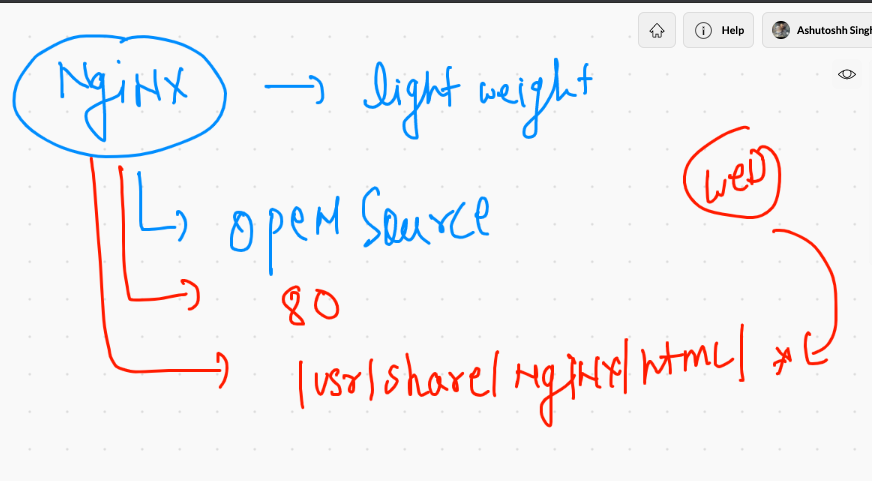 Help
Ashutoshh Singh
NgiNX → light weight
web
open source
80
/usr/share/NgiNX/html/ *